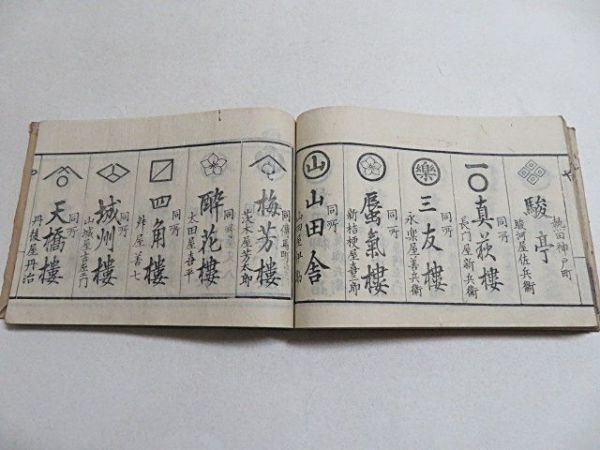 熱田神戸町
駿亭
駿河屋佐兵衛
同所
真荻樓
長門屋新兵衛
樂
同所
三友樓
永樂屋善兵衛
同所
蜃氣樓
新桔梗屋喜三郎
山
同所
山田舎
同傳馬町
梅芳樓
茨木屋芳太郎
同所
醉花樓
太田屋喜平
同所
四角樓
屋善七
同所
城州樓
山城屋吉左エ門
同所
天橋樓
丹後屋丹治